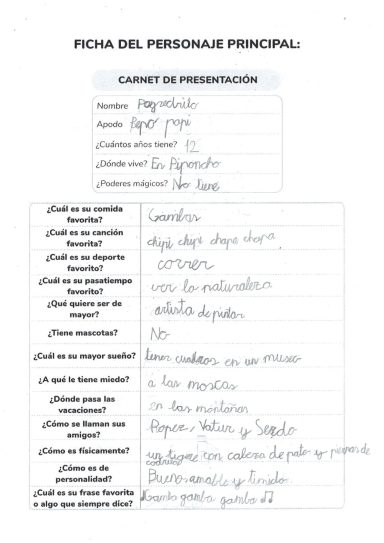 FICHA DEL PERSONAJE PRINCIPAL:
CARNET DE PRESENTACIÓN
Nombre
Apodo Pepo papi
¿Cuántos años tiene? 12
¿Dónde vive? En Piponcho
¿Poderes mágicos? No tiene
¿Cuál es su comida
favorita? Gambas
¿Cuál es su canción
favorita? chipi chipi chapa chapa
¿Cuál es su deporte
favorito? correr
¿Cuál es su pasatiempo
favorito? ver la naturaleza
¿Qué quiere ser de
mayor? artista de pintar
¿Tiene mascotas? No
¿Cuál es su mayor sueño? tener cuadros en un museo
¿A qué le tiene miedo? a las moscas
¿Dónde pasa las
vacaciones? en las montañas
¿Cómo se llaman sus
amigos? Popez, y
¿Cómo es físicamente? un tigre con cabeza de pato y piernas de
¿Cómo es de
personalidad? Bueno, amable y timido
¿Cuál es su frase favorita
o algo que siempre dice? Gamba gamba gamba